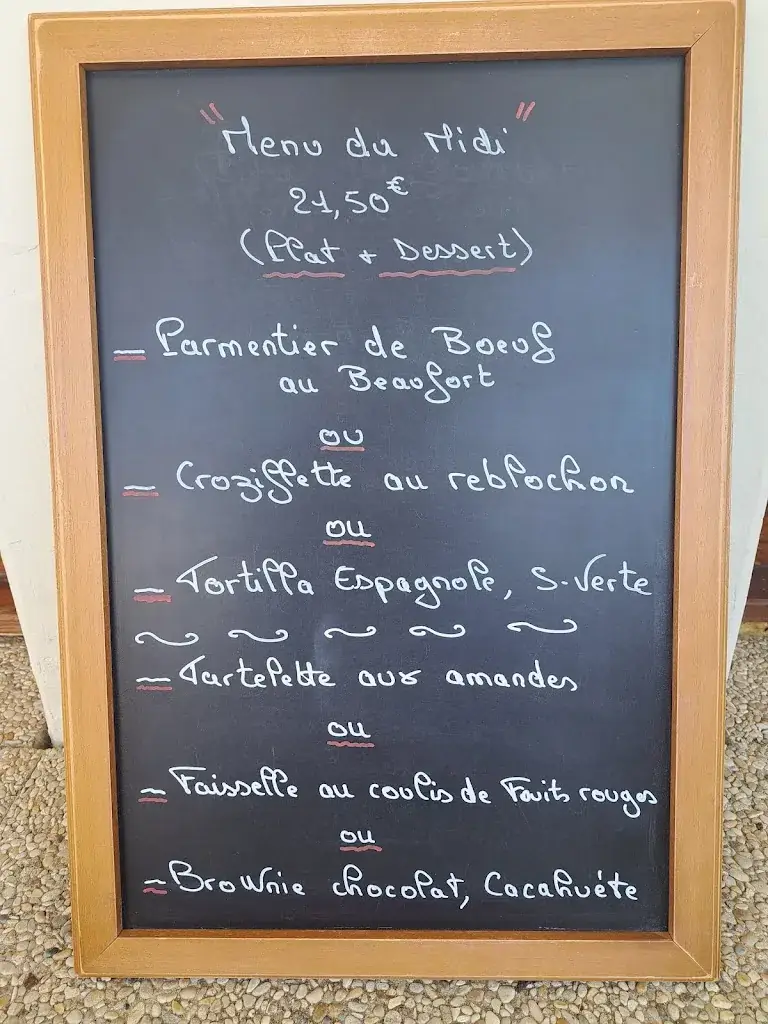 "Menu du Midi"
21,50€
(Plat + Dessert)
— Parmentier de Boeuf
au Beaufort
ou
— Croziflette au reblochon
ou
— Tortilla Espagnole, S.Verte
— Tartelette aux amandes
ou
— Faisselle au coulis de Fruits rouges
ou
— Brownie chocolat, Cacahuéte